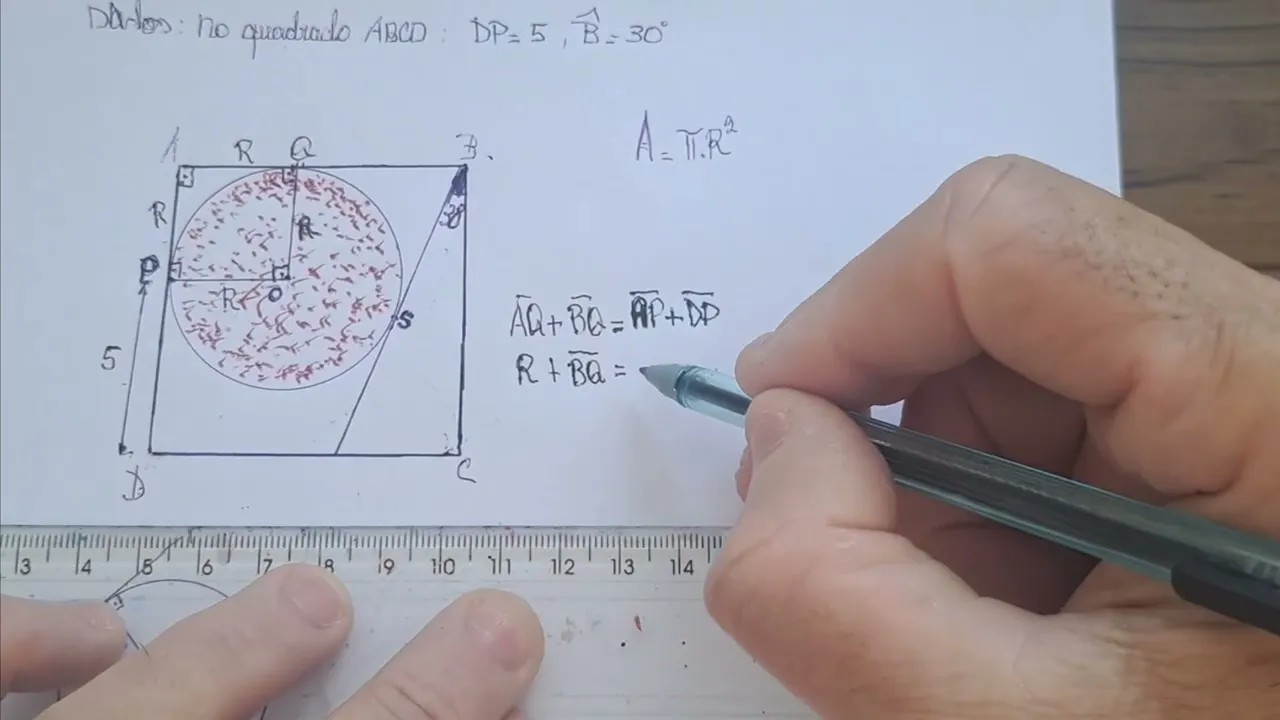 Dados: no quadrado ABCD: DP = 5, B̂ = 30°
A = π.R²
A R Q B.
R R 30°
P R O S
5
D C
A͞Q + B͞Q = A͞P + D͞P
R + B͞Q =
3 4 5 6 7 8 9 10 11 12 13 14